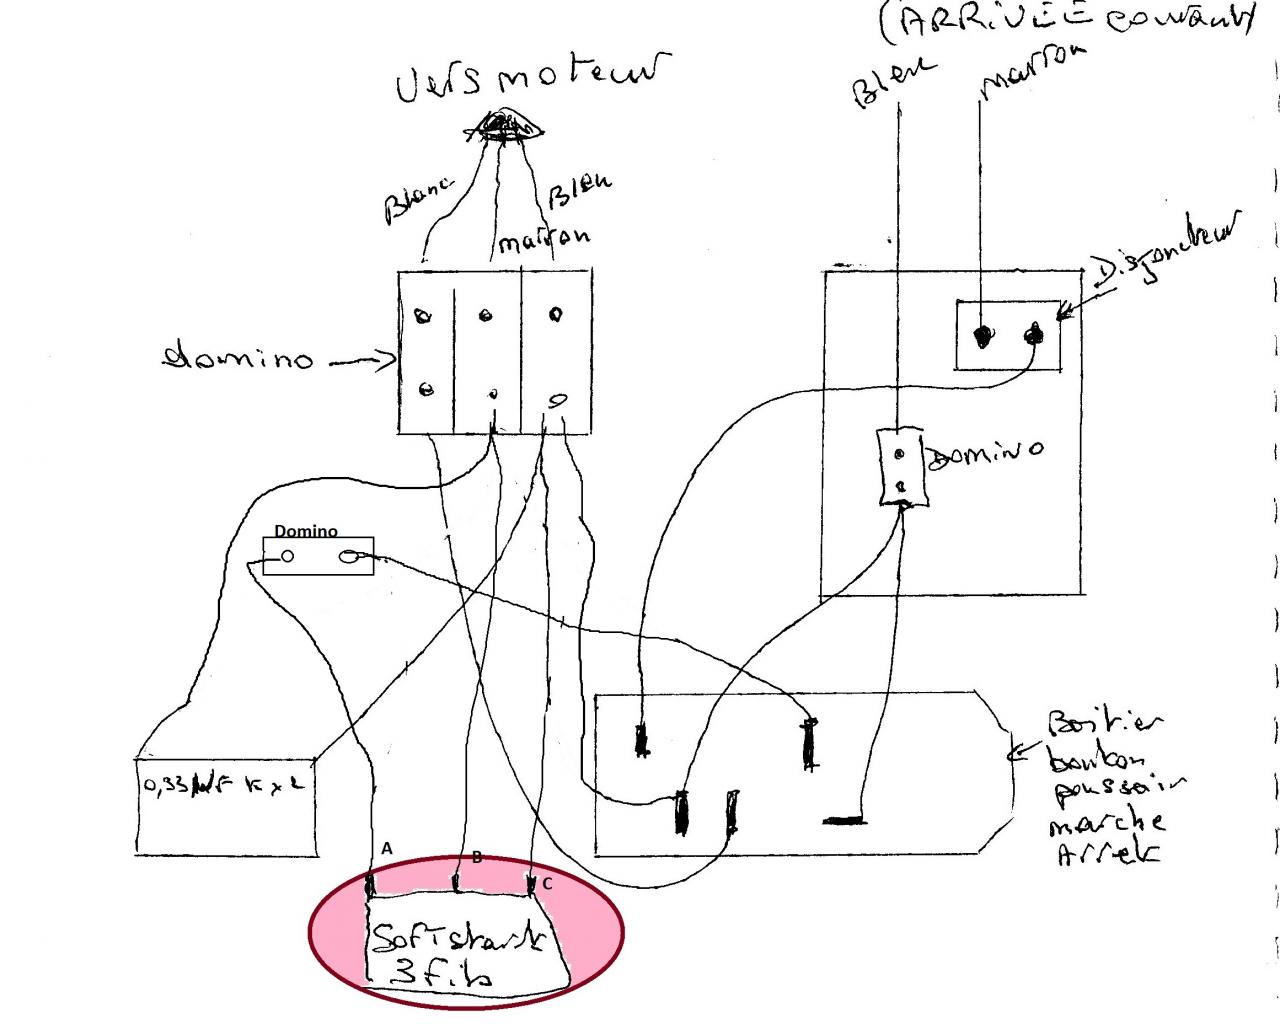 (ARRIVÉE courant)
Bleu
marron
Vers moteur
Blanc
Bleu
marron
Disjoncteur
domino
Domino
Domino
Boitier
bouton
poussoir
marche
Arret
0,33
A
B
C
Softstart
3 fils